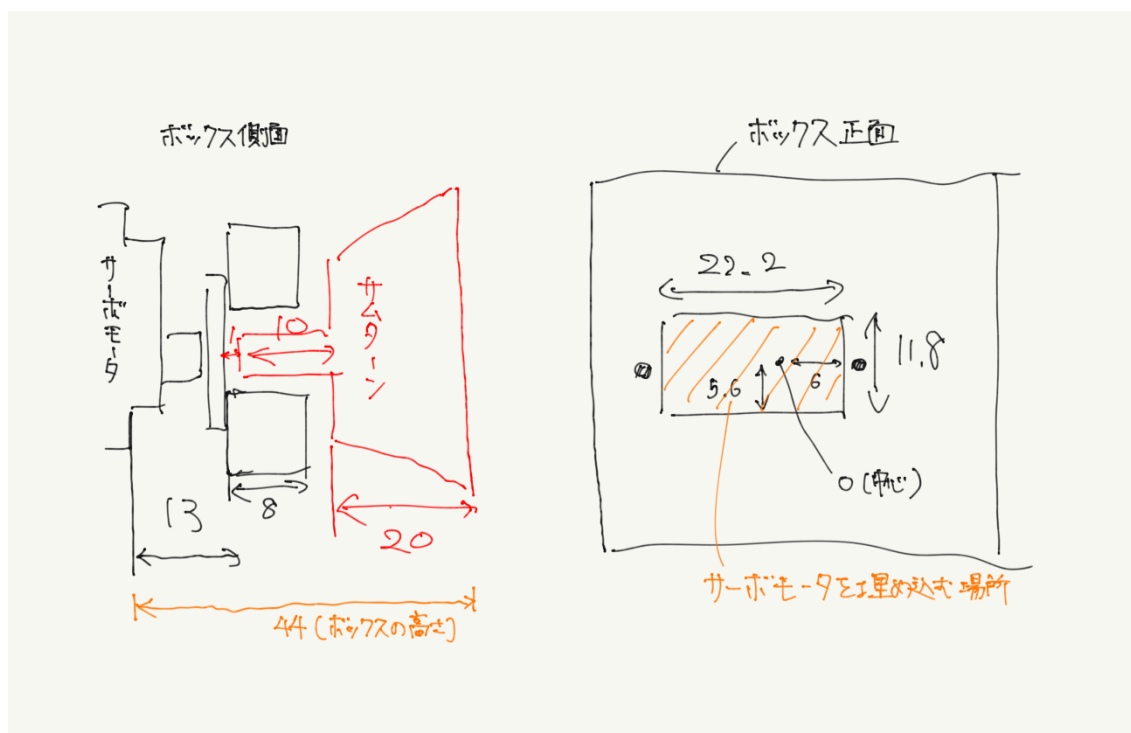 ボックス側面
サーボモータ
1
10
サムターン
13
8
20
44(ボックスの高さ)
ボックス正面
22.2
11.8
5.6
6
0(中心)
サーボモータを埋め込む場所